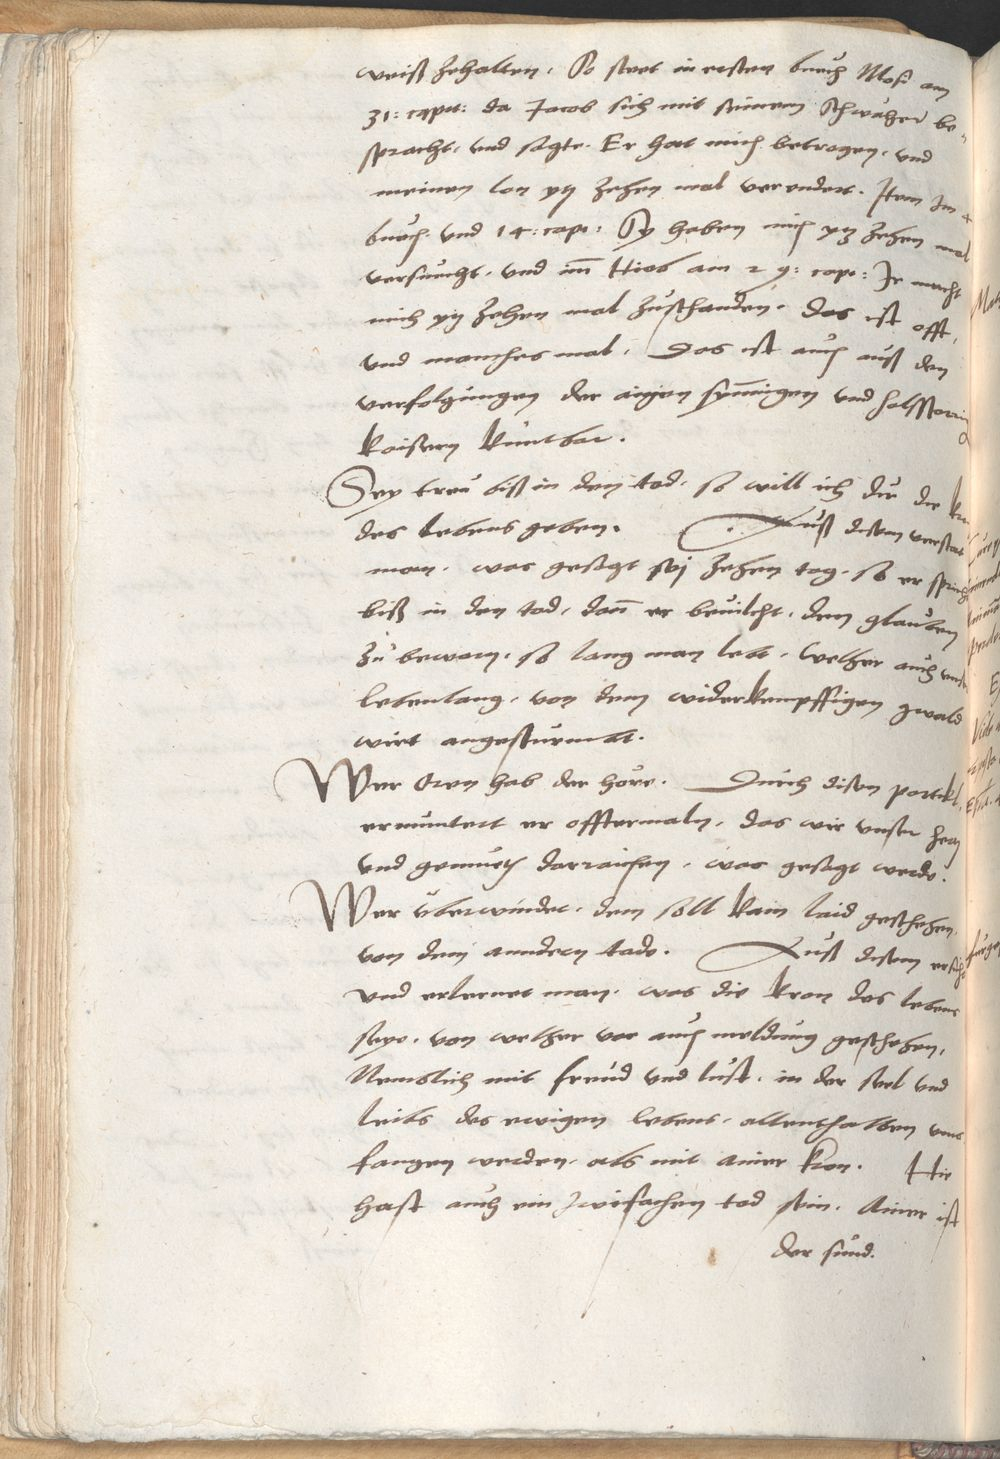 weiß zehalten. So stet in ersten buech Mosi am
31: capit: da Jacob sich mit seinem schwäher be-
spracht, vnd sagte. Er hat mich betrogen, vnd
meinen lon yetz zehen mal verendert. Item Im 4
buech. vnd 14: cap: Sy haben mich yetz zehen mal
versuecht, vnd im Hiob am 29: cap: Ir macht
mich yetz zehen mal zuschanden. das ist offt,
vnd manches mal. Das ist auch auß den
verfolgungen der aigen synnigen vnd halsstarrig
kaisern kuntbar.
Sey treu biß in den tod, so will ich dir die
des lebens geben. Auß disem verstat
man, was gesagt sei zehen tag, so er spricht
biß in den tod, dann er beuilcht, den glauben
zu bewarn, so lang man lebt, welher auch
lebenlang, von dem widerkempffigen gwald
wirt angesturmbt.
Wer Oren hab der höre. Durch disen partikl,
ermuntert er offtermaln, das wir vnser hertz
und gemueth darraichen, was gesagt werde.
Wer vberwindet, dem soll kain laid geschehen,
von dem anndern tode. Auß disem ersicht
vnd erlernet man, was die kron des lebens
seye, von welher vor auch meldung geschehen,
Nemblich mit freud vnd lust, in der seel vnd
leibs des ewigen lebens, allenthalben vmb
fangen werden, als mit ainer kron. Hie
hast auch ein zwifachen tod sein. Ainer ist
der sund.